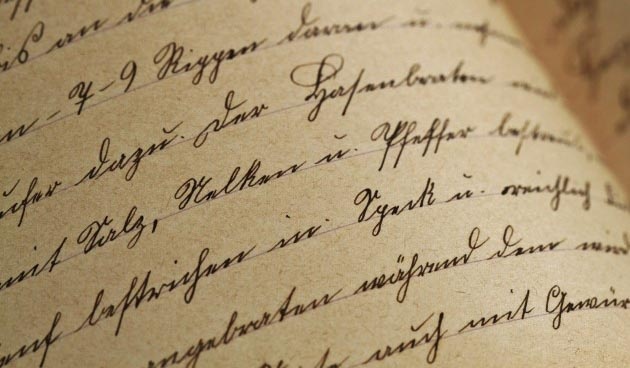 bis an die
n - 7 - 9 Rippen daran u.
dazu. Der Hasenbraten
mit Salz, Nelken u. Pfeffer bestreut,
bestrichen in Speck u. reichlich
angebraten während dem wird
auch mit Gewür